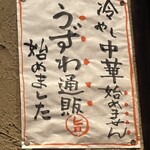 冷やし中華始めません
うずわ通販
始めました